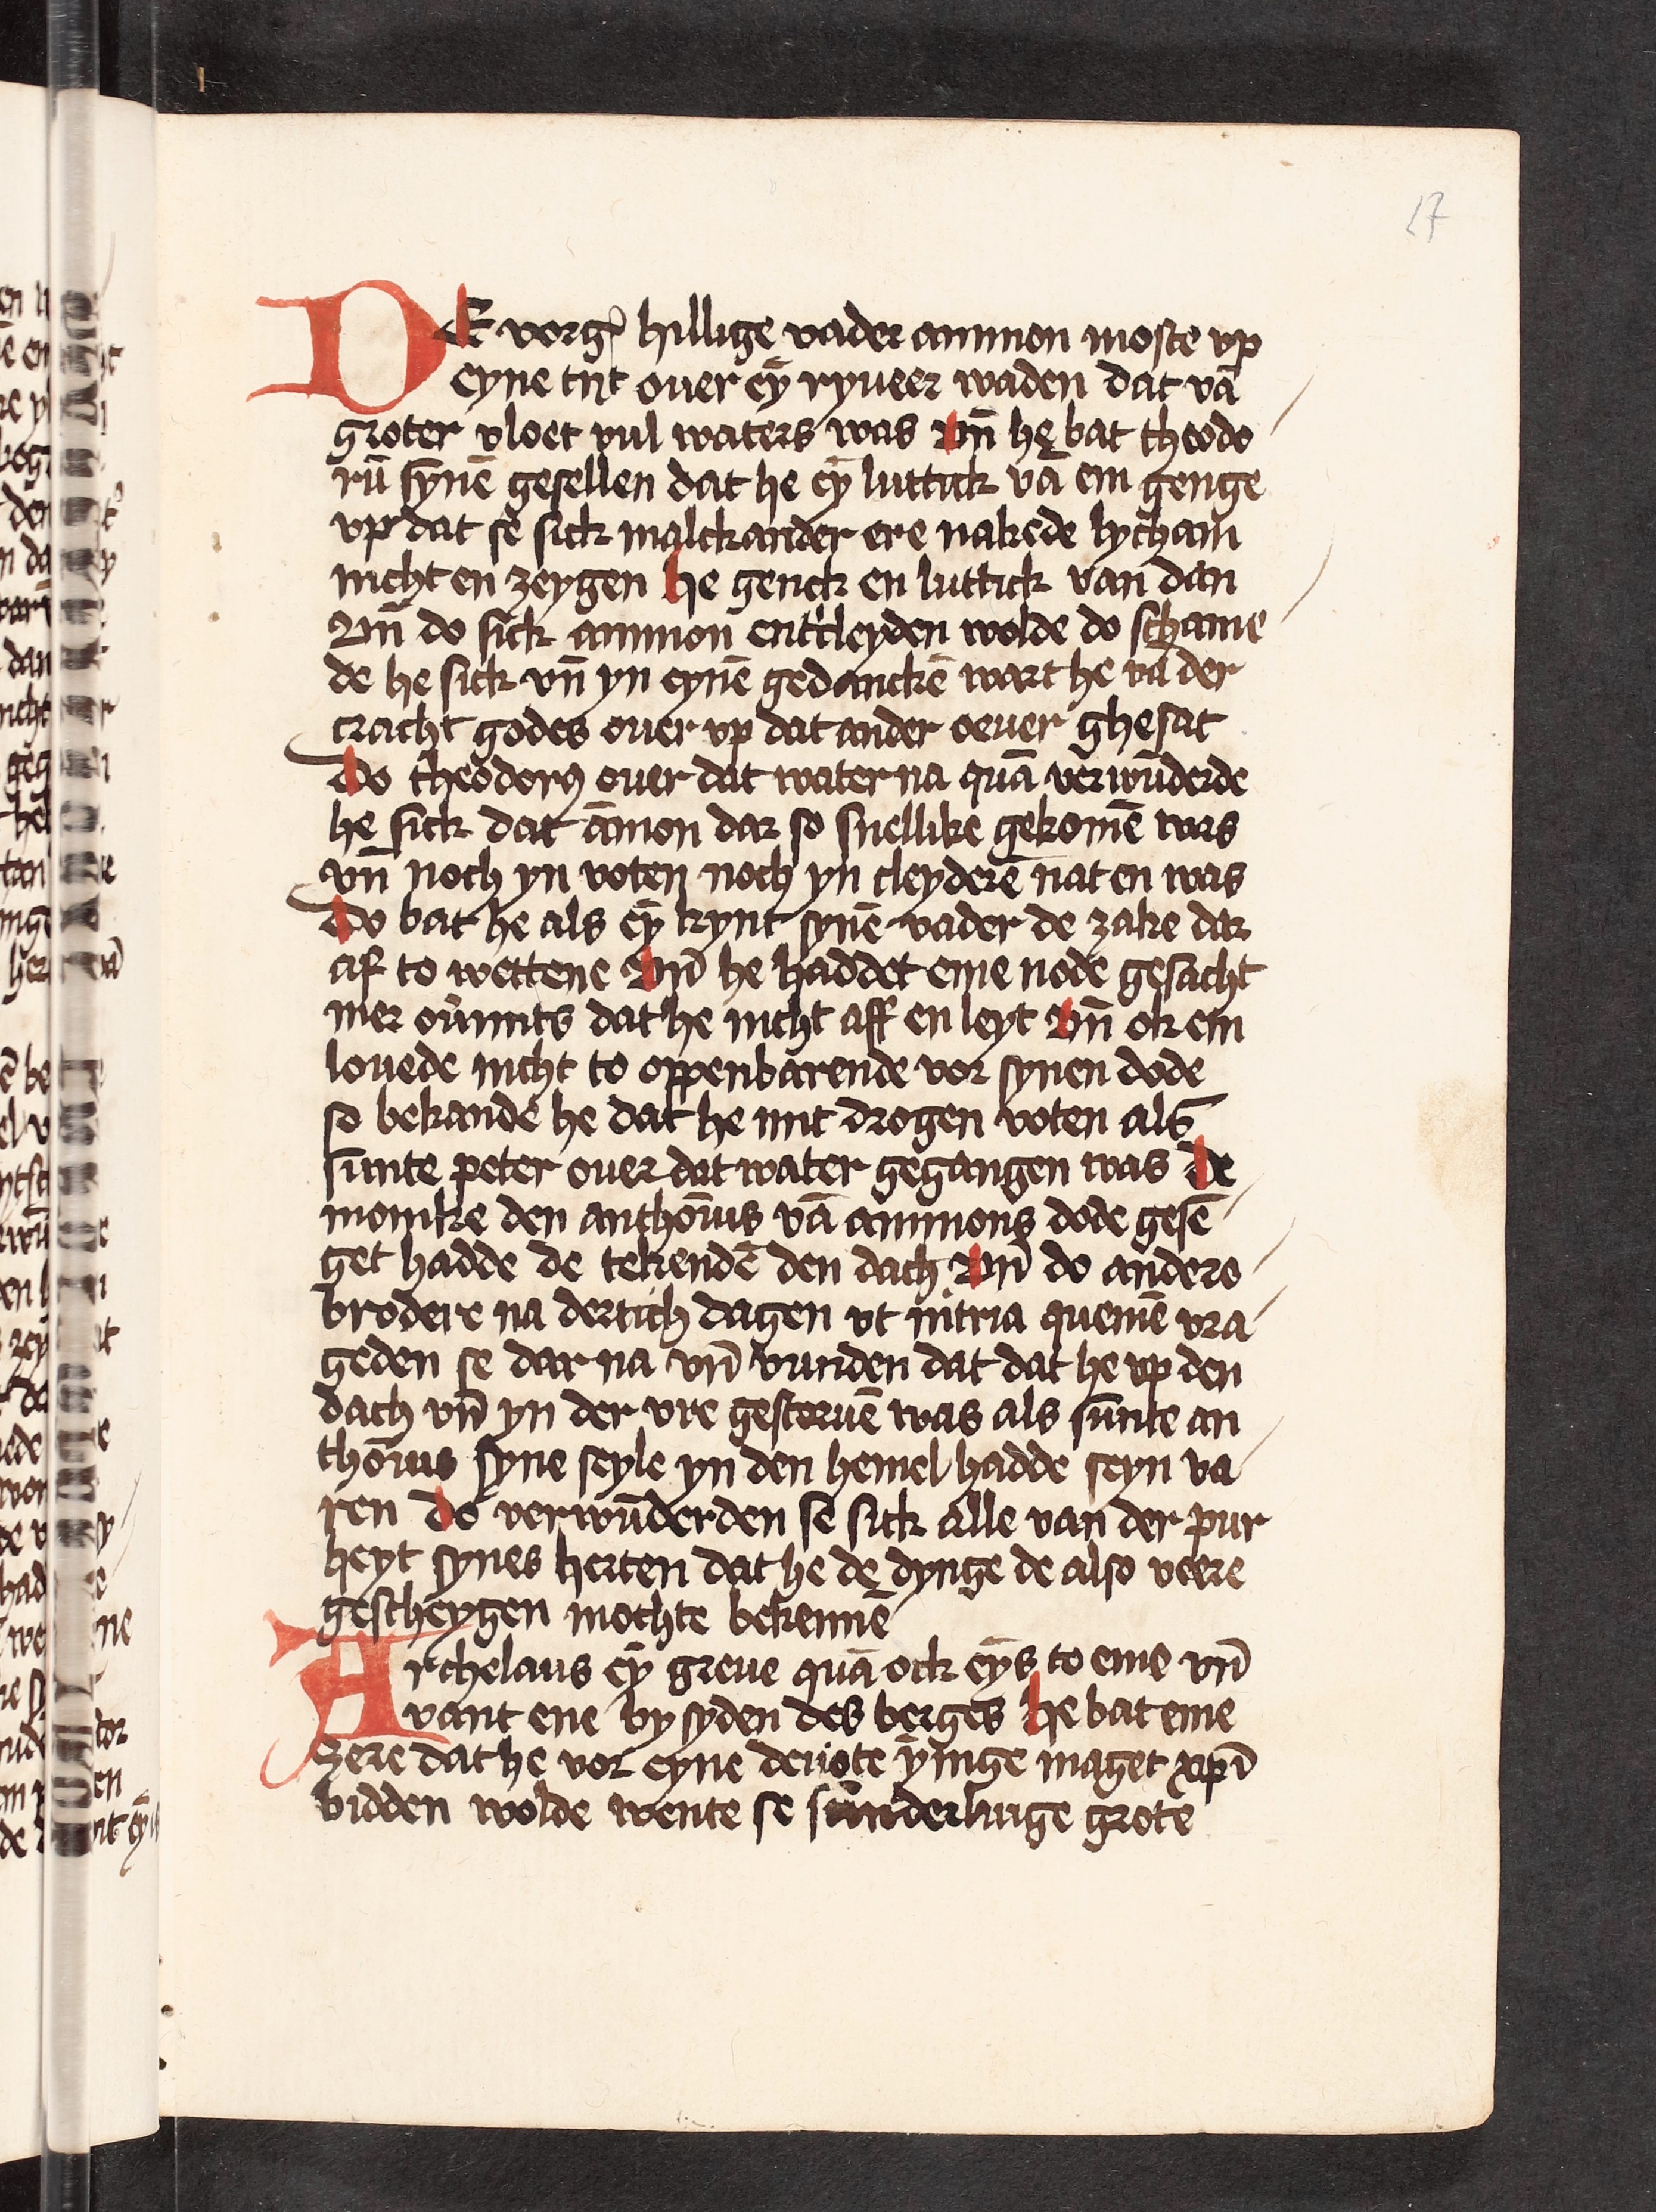 17
DE vorgͬ hillige vader ammon moste vp
eyne tyt ouer eȳ ryueer waden dat vā
groter vloet vul waters was vn̄ he bat theodo
rū synē gesellen dat he eȳ luttick vā em genge
vp dat se sick malckander ere nakede lycham
nicht en zeygen he genck en luttick van dan
Vn̄ do sick ammon entcleyden wolde do schame
de he sick vn̄ yn eynē gedanckē wart he vā der
cracht godes ouer vp dat ander oeuer ghesat
Do theodorꝯ ouer dat water na quā verwūderde
he sick dat āmon dar so snellike gekomē was
vn̄ noch yn voten noch yn cleyderē nat en was
Do bat he als eȳ kynt synē vader de zake dar
af to wettene Vn̄ he haddet eme node gesacht
mer ouͤmits dat he nicht aff en leyt Vn̄ ok em
louede nicht to oppenbarende vor synen dode
so bekande he dat he mit drogen voten als
sunte peter ouer dat water gegangen was De
monike den anthōius vā ammons dode gesē
get hadde de tekendē den dach Vn̄ do andere
brodere na dertich dagen vt nitria quemē vra
geden se dar na vn̄ vunden dat dat he vp den
dach vn̄ yn der vre gestoruē was als sunte an
thōius syne seyle yn den hemel hadde seyn va
ren do verwūderden se sick alle van der pur
heyt synes herten dat he de dynge de also veere
gescheygen mochte bekennē
Archelaus eȳ greue quā ock eȳs to eme vn̄
vant ene by syden des berges he bat eme
zere dat he vor eyne deuote ȳnige maget xpī
bidden wolde wente se sunderlinge grote